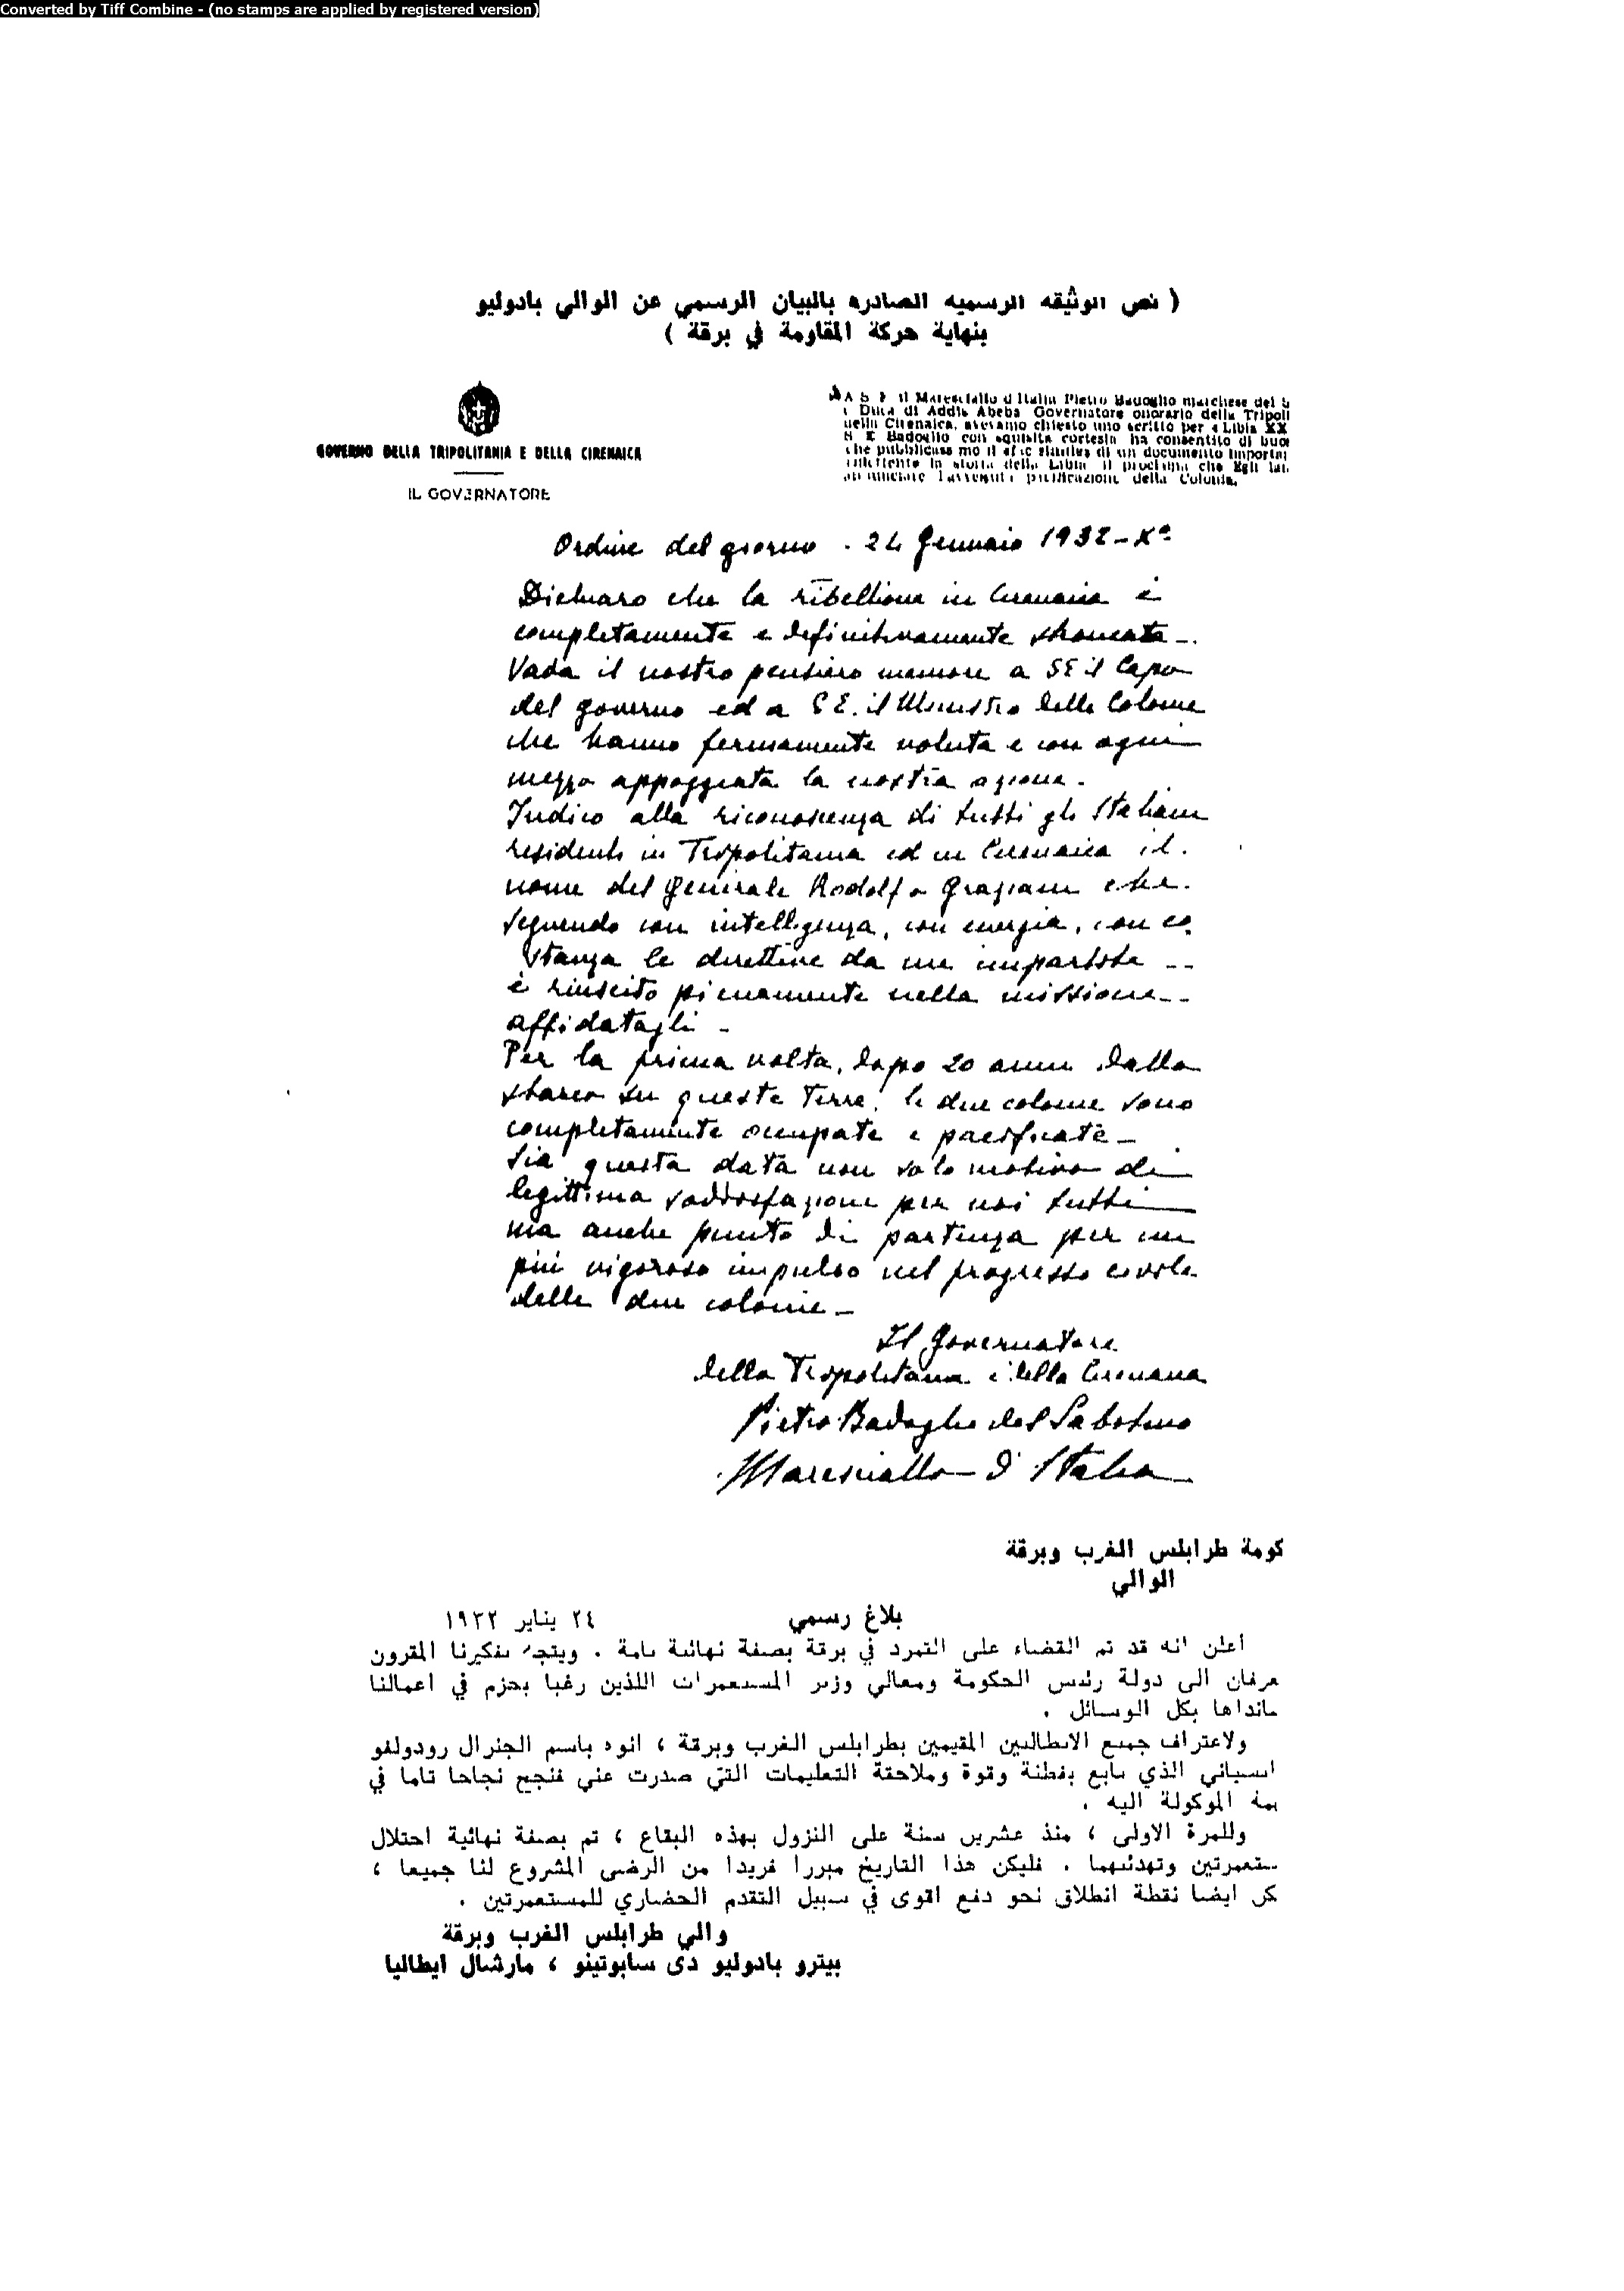 Converted by Tiff Combine - (no stamps are applied by registered version)
( نص الوثيقه الرسميه الصادره بالبيان الرسمي عن الوالي بادوليو
بنهاية حركة المقاومة في برقة )
GOVERNO DELLA TRIPOLITANIA E DELLA CIRENAICA
IL GOVERNATORE
A S E il Maresciallo d'Italia Pietro Badoglio marchese del S
Duca di Addis Abeba Governatore onorario della Tripoli
della Cirenaica, avevamo chiesto uno scritto per « Libia XX
S E Badoglio con squisita cortesia ha consentito di buon
che pubblicassimo il di un documento importan
la storia della Libia il proclama che Egli
l'avvenuta pacificazione della Colonia.
Ordine del giorno . 24 Gennaio 1932 - Xº
Dichiaro che la ribellione in Cirenaica è
completamente e definitivamente stroncata -.
Vada il nostro pensiero memore a SE il Capo
del governo ed a S E. il Ministro delle Colonie
che hanno fermamente voluta e con ogni
mezzo appoggiata la nostra azione.
Indico alla riconoscenza di tutti gli Italiani
residenti in Tripolitania ed in Cirenaica il
nome del generale Rodolfo Graziani che
seguendo con intelligenza, con energia, con co
stanza le direttive da me impartite --
è riuscito pienamente nella missione --
affidatagli -
Per la prima volta, dopo 20 anni dallo
sbarco su queste terre, le due colonie sono
completamente occupate e pacificate -
Sia questa data non solo motivo di
legittima soddisfazione per noi tutti
ma anche punto di partenza per un
più vigoroso impulso nel progresso civile
delle due colonie -
Il Governatore
della Tripolitania e della Cirenaica
Pietro Badoglio del Sabotino
Maresciallo d'Italia
كومة طرابلس الغرب وبرقة
الوالي
بلاغ رسمي ٢٤ يناير ١٩٣٢
أعلن انه قد تم القضاء على التمرد في برقة بصفة نهائية تامة . ويتجه تفكيرنا المقرون
عرفان الى دولة رئيس الحكومة ومعالي وزير المستعمرات اللذين رغبا بحزم في اعمالنا
ساندأها بكل الوسائل .
ولاعتراف جميع الايطاليين المقيمين بطرابلس الغرب وبرقة ، انوه باسم الجنرال رودولفو
الذي تابع بفطنة وقوة وملاحقة التعليمات التي صدرت عني فنجح نجاحا تاما في
الموكولة اليه .
وللمرة الاولى ، منذ عشرين سنة على النزول بهذه البقاع ، تم بصفة نهائية احتلال
ستعمرتين وتهدئتهما . فليكن هذا التاريخ مبررا فريدا من الرضى المشروع لنا جميعا ،
كن ايضا نقطة انطلاق نحو دفع اقوى في سبيل التقدم الحضاري للمستعمرتين .
والي طرابلس الغرب وبرقة
بيترو بادوليو دى سابوتينو ، مارشال ايطاليا